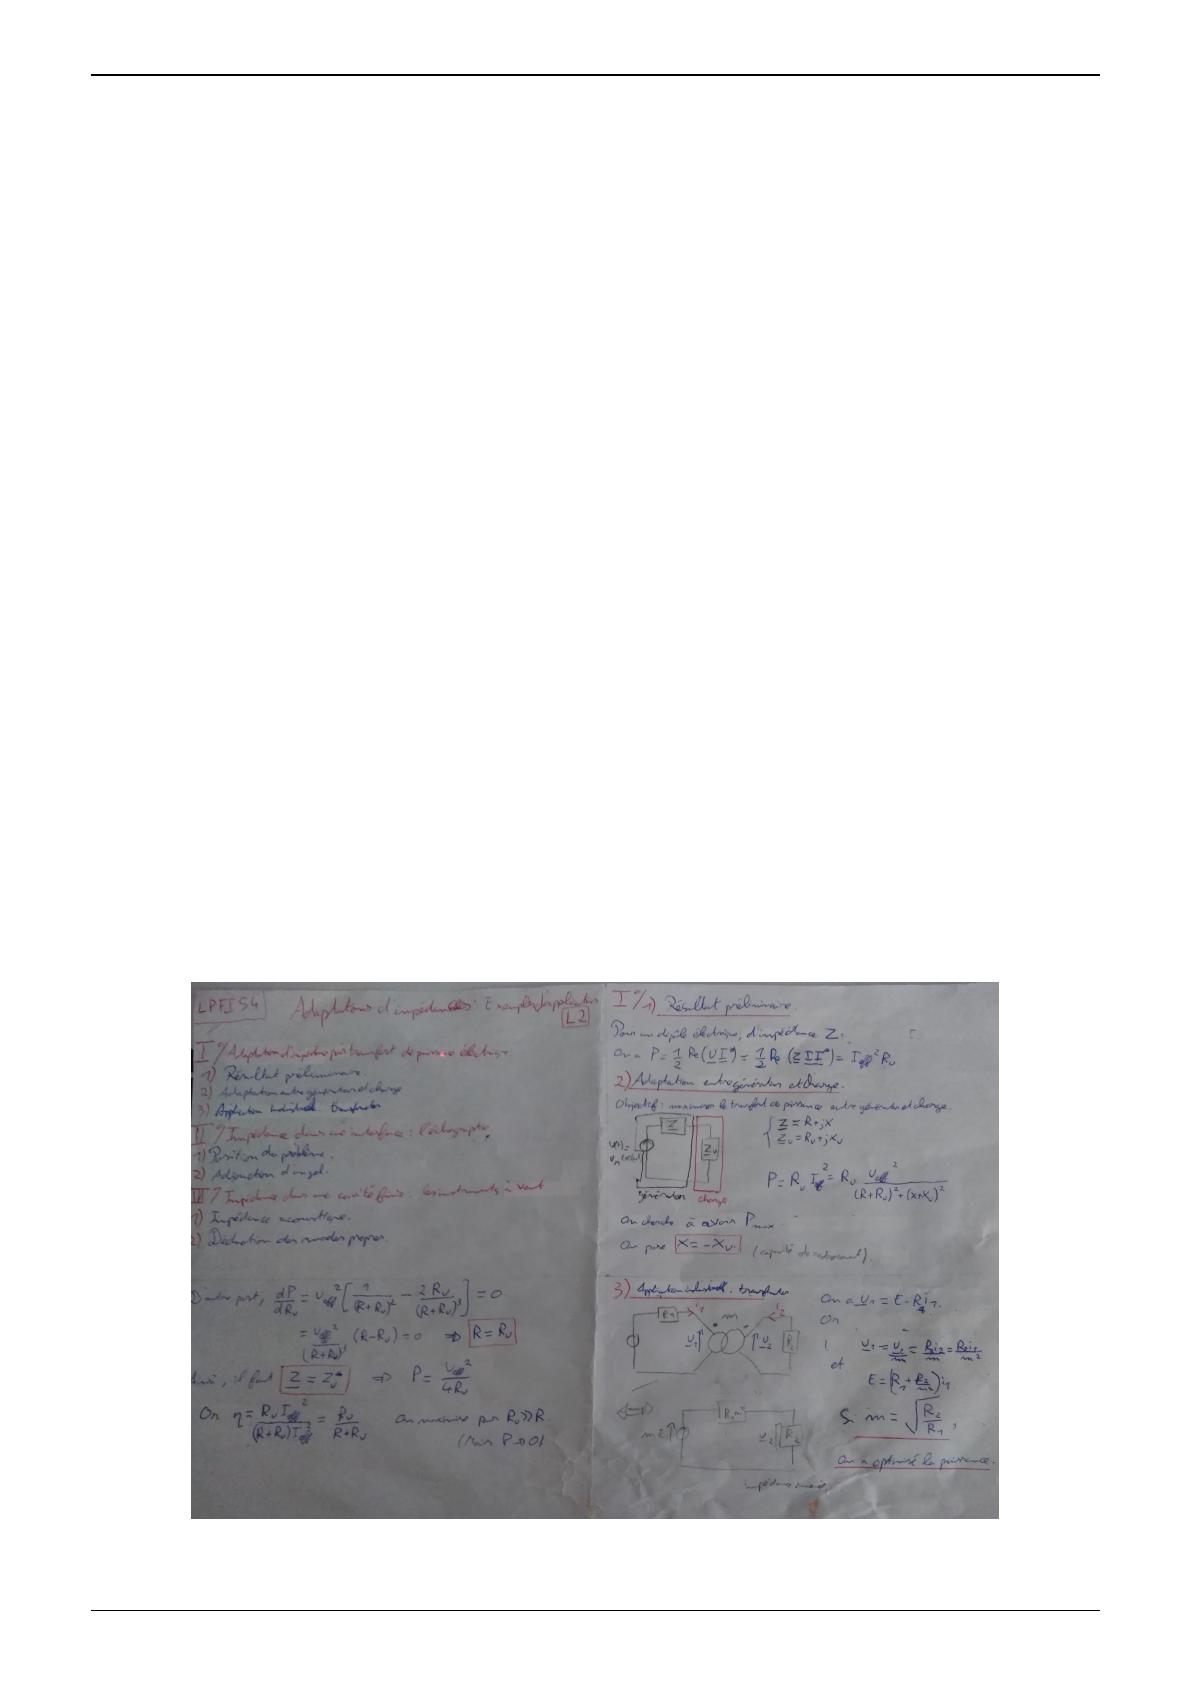 LPFIS4 Adaptations d'impédances : Exemples d'application
L2
I°/ Adaptation d'impédance par transfert de puissance électrique
1) Résultat préliminaire.
2) Adaptation entre générateur et charge
3) Application industrielle : transfo
II°/ Impédance dans une interface : l'échographie.
1) Position du problème.
2) Adjonction d'un gel.
III°/ Impédance dans une cavité finie : les instruments à vent
1) Impédance acoustique.
2) Déduction des modes propres.
D'autre part, dP/dRᵤ = Ueff² [1/(R+Rᵤ)² − 2Rᵤ/(R+Rᵤ)³] = 0
= Ueff²/(R+Rᵤ)³ (R−Rᵤ) = 0 ⇒ R = Rᵤ
Ainsi, il faut Z = Zᵤ* ⇒ P = Ueff²/4Rᵤ
On η = RᵤIeff²/(R+Rᵤ)Ieff² = Rᵤ/R+Rᵤ On maximise pour Rᵤ≫R.
(Mais P→0)
I°/1) Résultat préliminaire.
Pour un dipôle électrique, d'impédance Z :
On a P = 1/2 Re(U I*) = 1/2 Re (Z I I*) = Ieff² Rᵤ
2) Adaptation entre générateur et charge.
Objectif : maximiser le transfert de puissance entre générateur et charge.
Z
Zᵤ
générateur charge
Z = R+jX
Zᵤ = Rᵤ+jXᵤ
P = Rᵤ Ieff² = Rᵤ Ueff²/(R+Rᵤ)²+(X+Xᵤ)²
On cherche à avoir Pmax.
On pose X = −Xᵤ.
3) Application industrielle : transfo
R₁ i₁ m i₂
u₁ u₂ R₂
On a u₁ = E − R₁i₁.
Or
u₁ = u₂/m = R₂i₂/m = R₂i₁/m²
et
E = (R₁ + R₂/m²) i₁
mE R₁m² u₂ R₂
Si m = √(R₂/R₁),
On a optimisé la puissance.